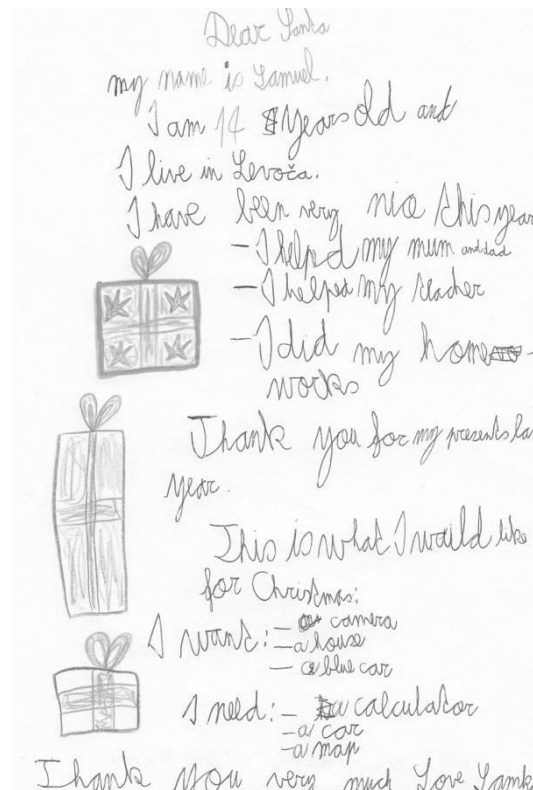 Dear Santa
my name is Samuel.
I am 14 years old and
I live in Levoča.
I have been very nice this year
- I helped my mum and dad
- I helped my teacher
- I did my home-
works
Thank you for my presents la
year.
This is what I would like
for Christmas:
I want: - a camera
- a house
- a blue car
I need: - a calculator
- a car
- a map
Thank you very much Love Samk